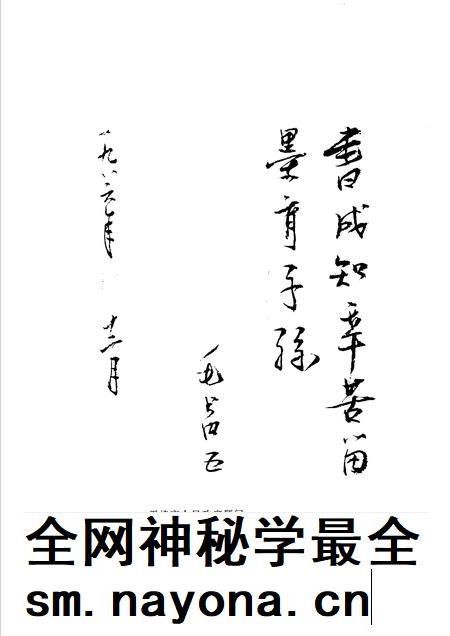 書成知辛苦留
墨育子孫
一九八六年 十二月
全网神秘学最全
sm.nayona.cn